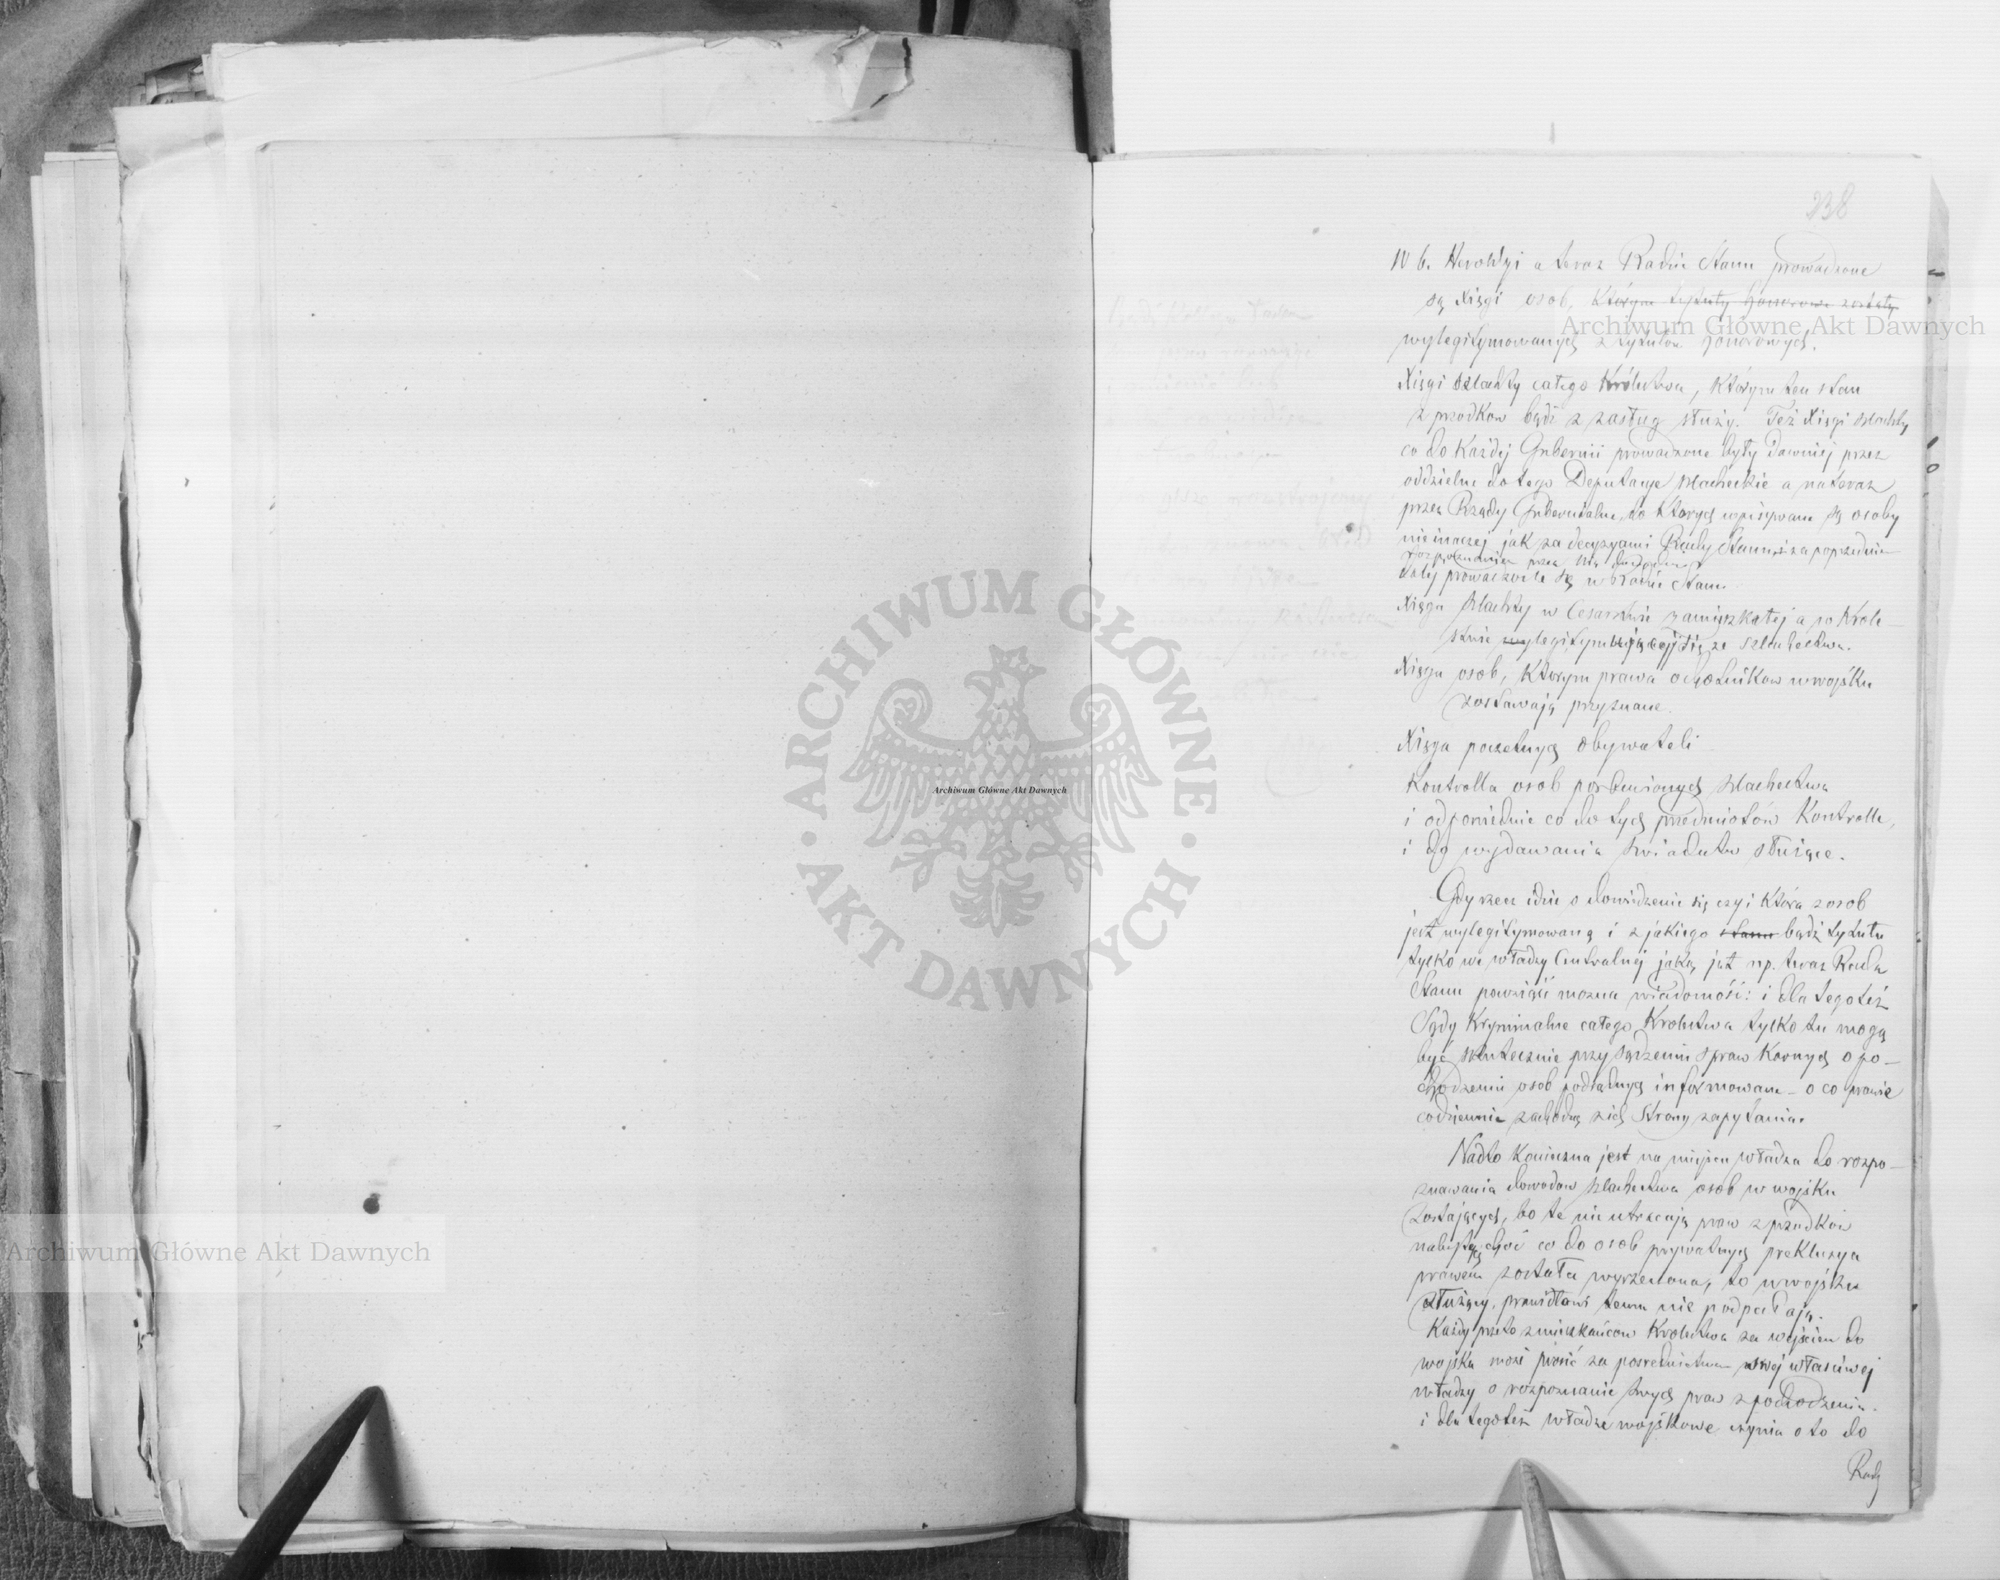 238
W b. Heroldyi a teraz Radzie Stanu prowadzone
są Xięgi osob, którym tytuły honorowe zostały
wylegitymowanych z tytułów honorowych.
Xięgi szlachty całego Królestwa, którym ten stan
z przodków bądź z zasług służy. Też Xięgi szlachty
co do każdej Gubernii prowadzone były dawniej przez
oddzielne do tego Deputacye szlacheckie a na teraz
przez Rządy Gubernialne, do których wpisywane są osoby
nieinaczej jak za decyzyami Rady Stanu i za poprzednie
rozpoznaniem przez
dalej prowadzone są w Radzie Stanu
Xięga szlachty w Cesarstwie zamieszkałej a w Króle-
stwie wylegitymującej się ze szlachectwa.
Xięga osob, którym prawa ochotników w wojsku
zostawają przyznane.
Xięga poczetnych obywateli
Kontrolla osob pozbawionych szlachectwa
i odpowiednie co do tych przedmiotów Kontrolle,
i do wydawania świadectw służące.
Gdy rzecz idzie o dowiedzenie się czy i która z osob
jest wylegitymowaną i z jakiego stanu bądź tytułu
tylko we władzy Centralnej jaką jest np. teraz Rada
Stanu powziąść można wiadomość: i dla tego też
Sądy Kryminalne całego Królestwa tylko tu mogą
być skutecznie przy sądzeniu spraw karnych o po-
chodzeniu osob podsądnych informowane – o co prawie
codziennie zachodzą z ich strony zapytania.
Nadto konieczna jest na miejscu władza do rozpo-
znawania dowodów szlachectwa osob w wojsku
zostających, bo te nie utracają praw z przodków
nabytych, choć co do osob prywatnych prekluzya
prawem została wyrzeczona, to w wojsku
służący, prawidłowi temu nie podpadają.
Każdy przeto z mieszkańców Królestwa za wejściem do
wojska może prosić za pośrednictwem swej właściwej
władzy o rozpoznanie swych praw z pochodzenia.
i dla tego też władze wojskowe czynią o to do
Rady
Archiwum Główne Akt Dawnych
Archiwum Główne Akt Dawnych
Archiwum Główne Akt Dawnych
ARCHIWUM GŁÓWNE · AKT DAWNYCH ·